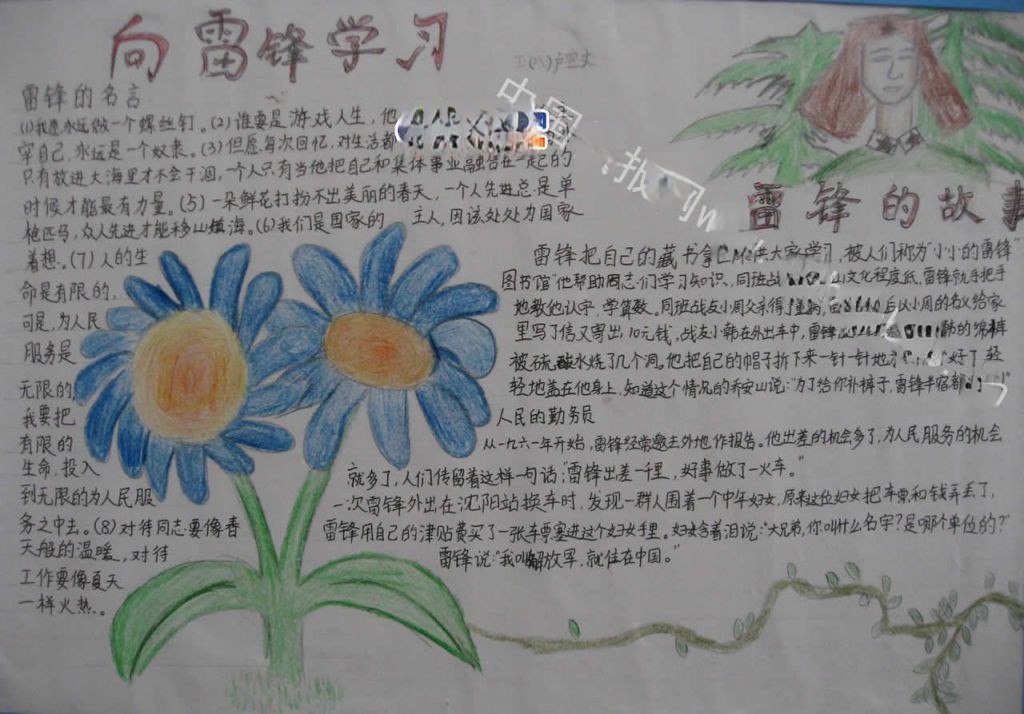 向雷锋学习
雷锋的名言
(1)我愿永远做一个螺丝钉。(2)谁要是游戏人生，他
宰自己，永远是一个奴隶。(3)但愿每次回忆，对生活都
只有放进大海里才不会干涸，一个人只有当他把自己和集体事业融合在一起的
时候才能最有力量。(5)一朵鲜花打扮不出美丽的春天，一个人先进总是单
枪匹马，众人先进才能移山填海。(6)我们是国家的 主人，因该处处为国家
着想。(7)人的生
命是有限的，
可是，为人民
服务是
无限的，
我要把
有限的
生命，投入
到无限的为人民服
务之中去。(8)对待同志要像春
天般的温暖，对待
工作要像夏天
一样火热。
雷锋的故事
雷锋把自己的藏书拿 供大家学习，被人们称为“小小的雷锋”
图书馆”他帮助同志们学习知识，同班战 山文化程度低，雷锋就手把手
地教他认字，学算数。同班战友小周父亲得 病， 后以小周的名义给家
里写了信又寄出，10元钱，战友小韩在外出车中， 雷锋 韩的棉裤
被硫酸水烧了几个洞。他把自己的帽子拆下来一针一针地 好了 轻
轻地盖在他身上，知道这个情况的乔安山说：“为了给你补裤子，雷锋半宿都
人民的勤务员
从一九六一年开始，雷锋经常邀去外地作报告。他出差的机会多了，为人民服务的机会
就多了，人们传留着这样一句话：“雷锋出差一千里，好事做了一火车。”
一次雷锋外出在沈阳站换车时，发现一群人围着一个中年妇女，原来这位妇女把车票和钱弄丢了，
雷锋用自己的津贴费买了一张车票塞进这个妇女手里。妇女含着泪说：“大兄弟，你叫什么名字？是哪个单位的？”
雷锋说：“我叫解放军，就住在中国。”